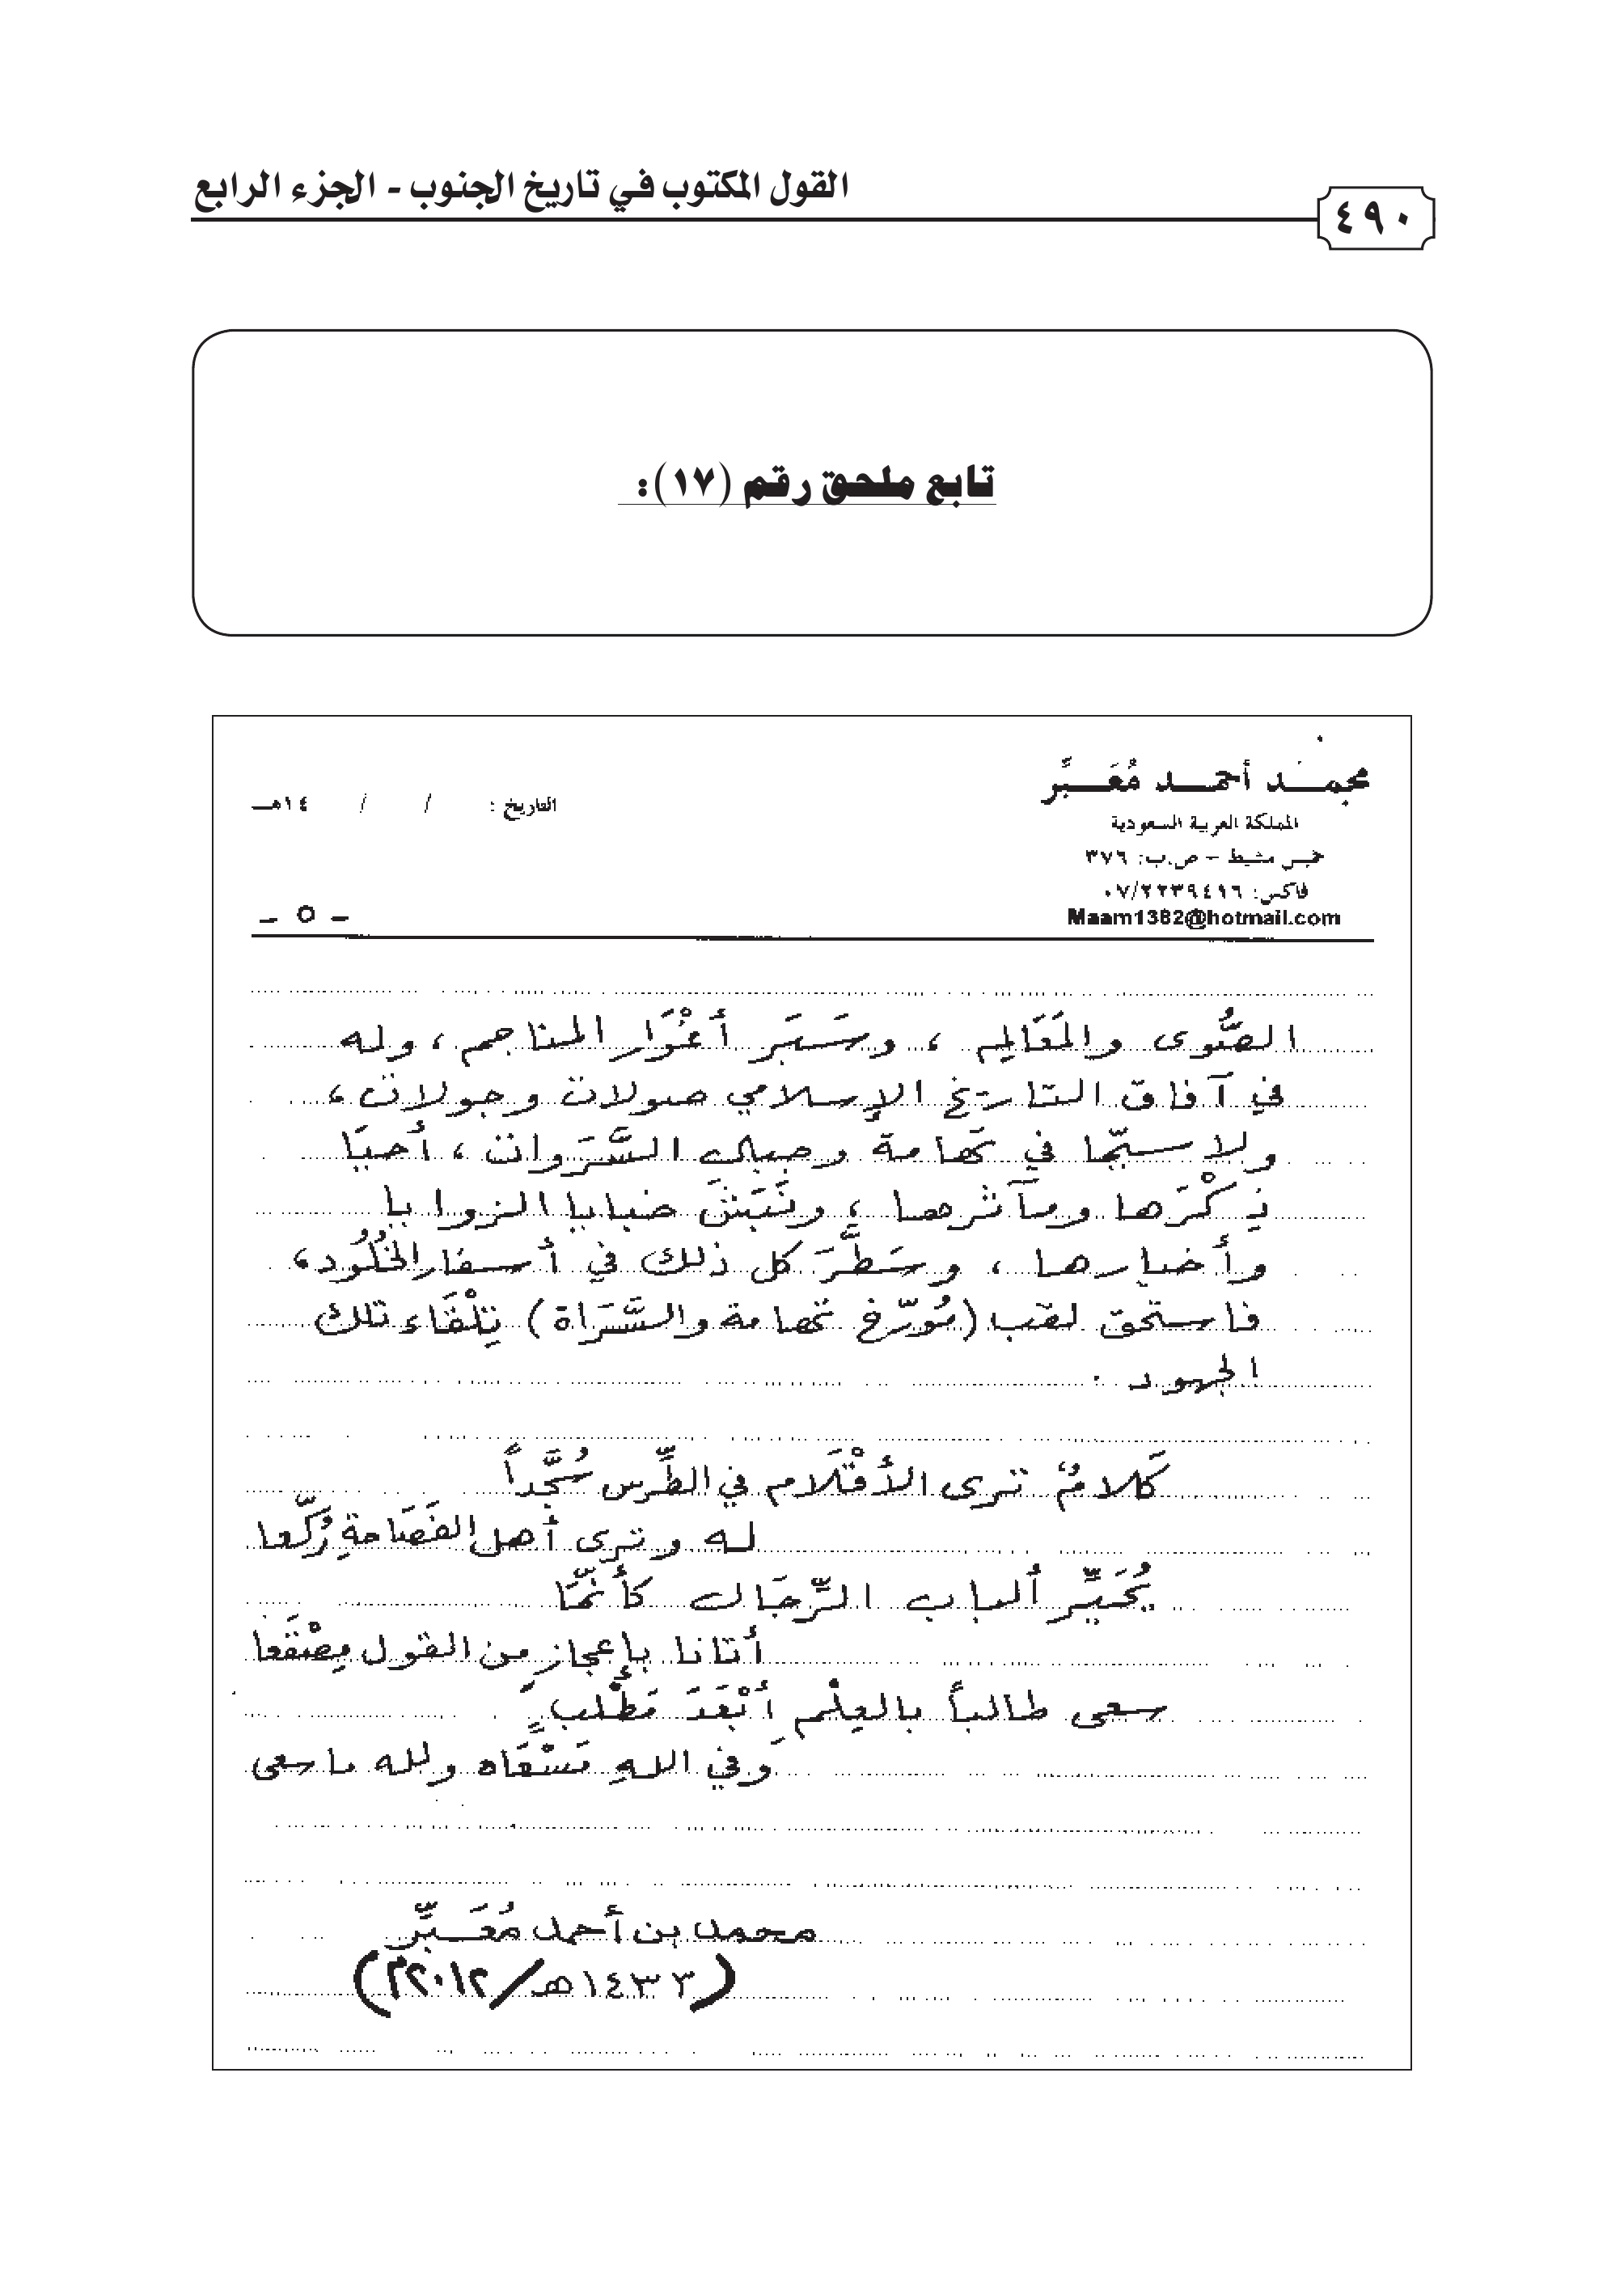 القول المكتوب في تاريخ الجنوب - الجزء الرابع
٤٩٠
تابع ملحق رقم (١٧):
محمد أحمد مُعَبِّر
المملكة العربية السعودية
خميس مشيط - ص.ب: ٣٧٦
فاكس: ٠٧/٢٢٣٩٤١٦
Maam1382@hotmail.com
التاريخ : / / ١٤هـ
- ٥ -
الصُّوى والمَعَالِم ، وسَبَر أغْوَار المناجم ، وله
في آفاق التاريخ الإسلامي صولات وجولات ،
ولا سيّما في تهامة وجبال السَّرَوات ، أحيَا
ذِكْرَها ومآثرها ، ونَبَشَ خبايا الزوايا
وأخبارها ، وسَطَّرَ كل ذلك في أسفار الخُلُود ،
فاستحق لقب (مُورّخ تهامة والسَّرَاة) تِلْقَاء تلك
الجهود .
كَلامٌ ترى الأقْلَام في الطِّرس سُجَّداً
له وترى أهل الفَصَاحةِ رُكّعا
يُحَيِّر ألباب الرِّجَال كأنمّا
أتانا بإعجاز من القول مِصْقَعا
سعى طالباً بالعِلْم أَبْعَدَ مَطْلبٍ
وفي اللهِ مَسْعَاه ولله ما سعى
محمد بن أحمد مُعَبِّر
(١٤٣٣هـ/٢٠١٢م)